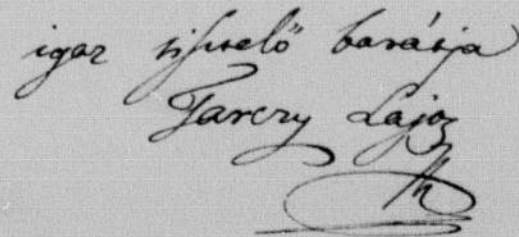 igaz tisztelő barátja
Tarczy Lajos